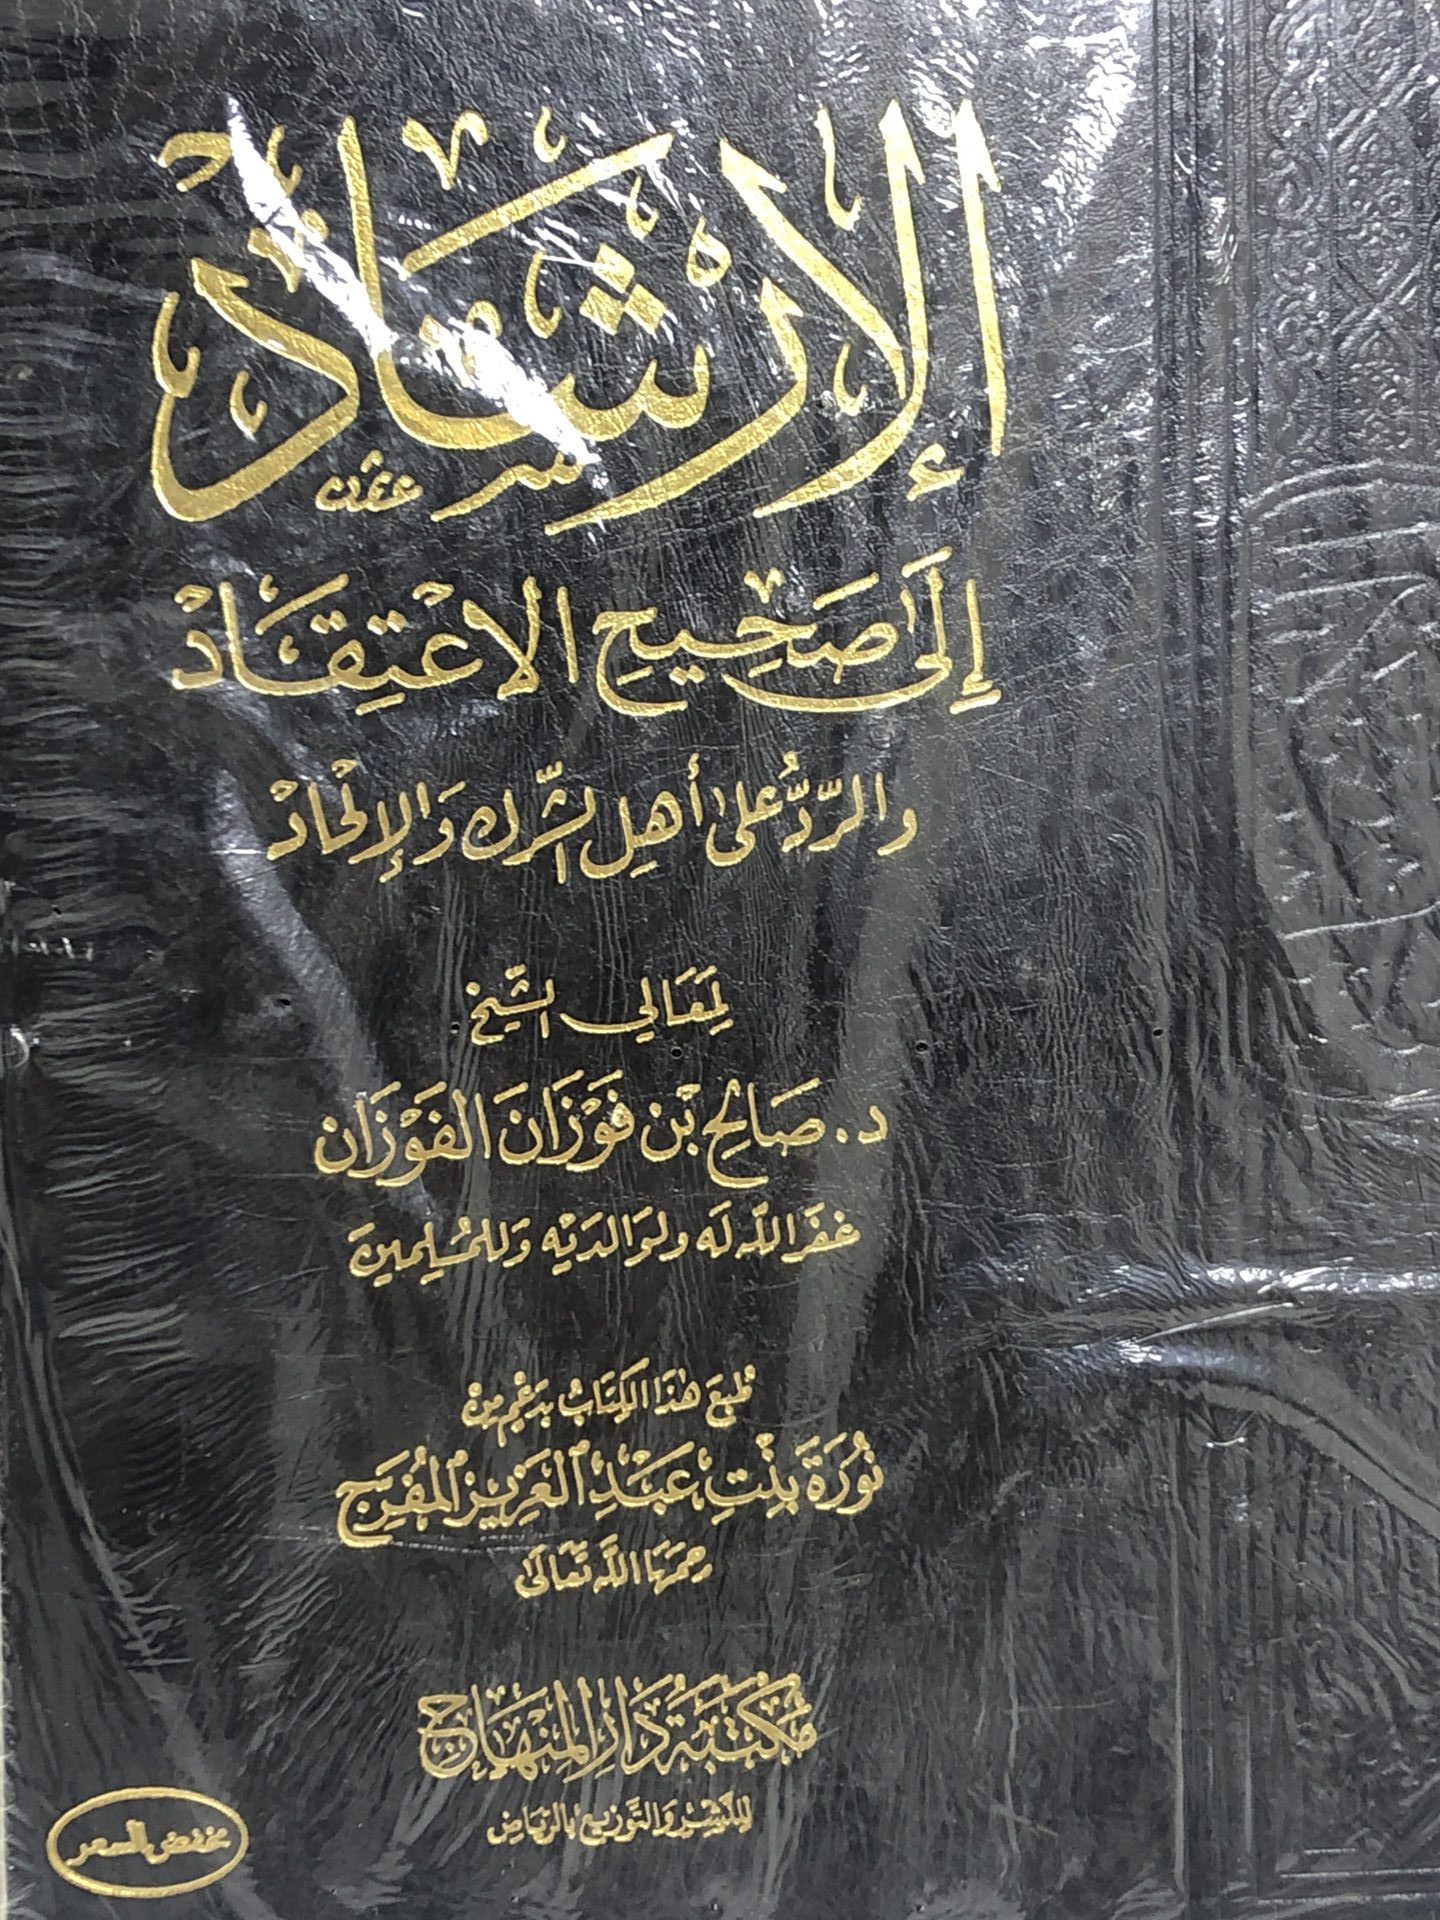 الإرشاد
إلى صَحِيحِ الاعْتِقَادْ
والرَّدُّ على أهلِ الشِّرك وَالإلْحَادْ
لمَعَالي الشَّيخ
د. صَالح بْن فَوْزَانَ الفَوْزَان
غفَر الله لَه ولوَالديْه وَللمُسْلِمين
طُبعَ هٰذَا الكِتَابُ بدَعْمٍ مِنْ
نُورَة بِنْتِ عَبْدِ العَزِيز المُفَرِّج
رحمَهَا اللَّه تَعَالَى
مَكْتَبَةُ دَارِ المِنْهَاجِ
للنَّشْرِ والتَّوزيعِ بالرّيَاض
مخفض السعر